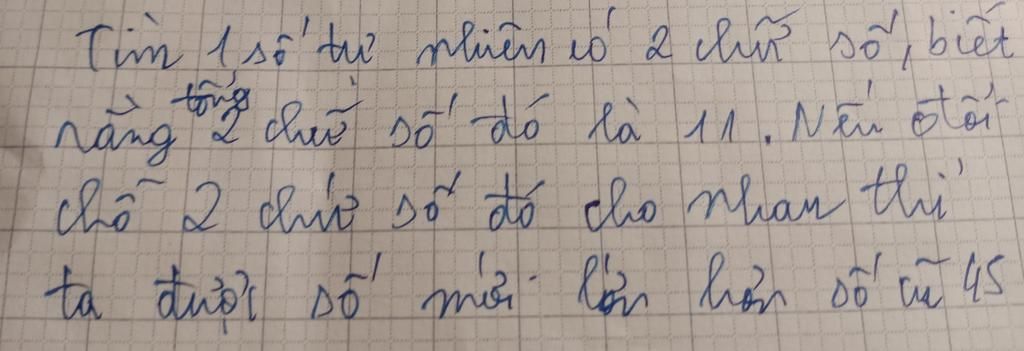 Tìm 1 số tự nhiên có 2 chữ số, biết
rằng tổng 2 chữ số đó là 11. Nếu đổi
chỗ 2 chữ số đó cho nhau thì
ta được số mới lớn hơn số cũ 45